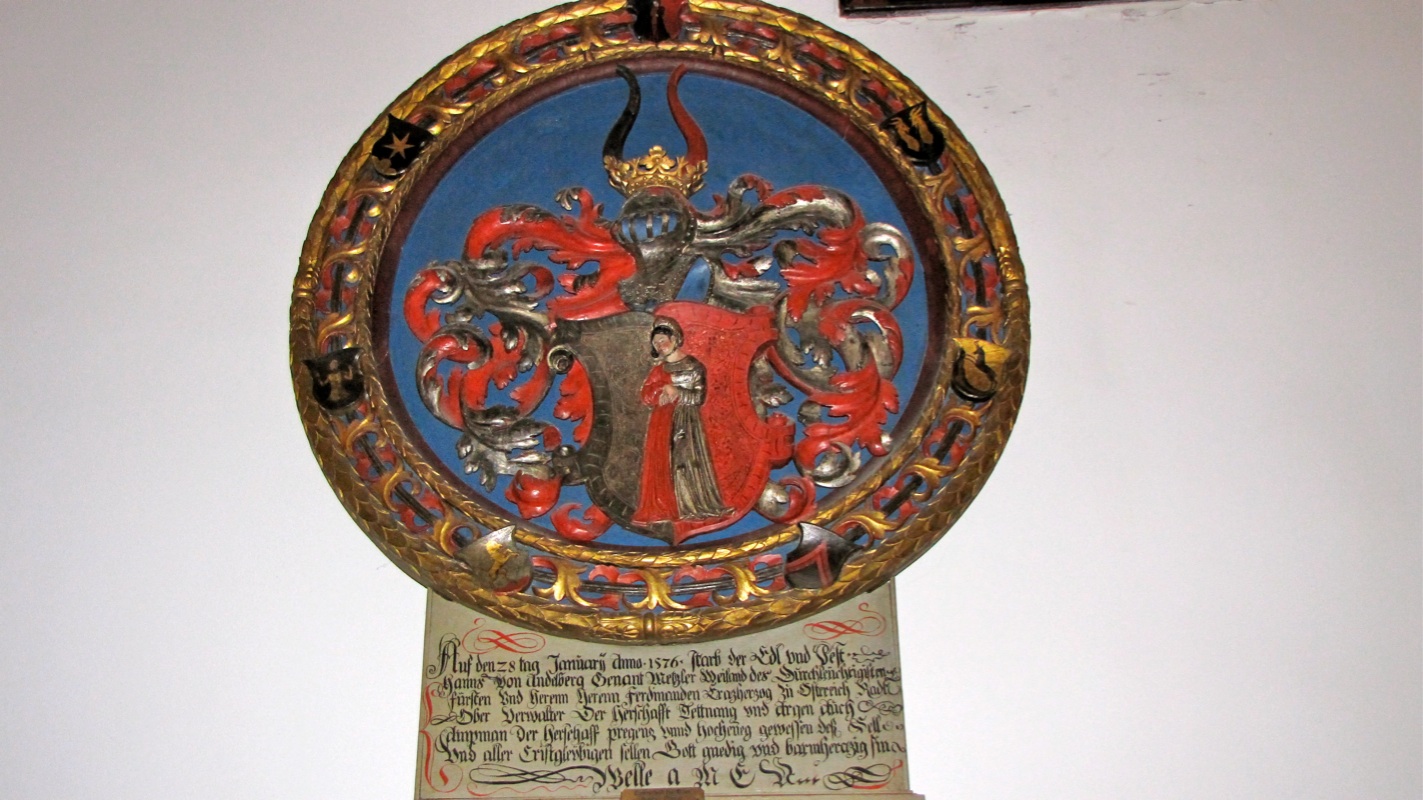 Auf den 28 tag Januarÿ Anno · 1576 · starb der Edl vnd Vest
Hanns Von Andlberg Genant Metzler Weiland des Durchleuchtigisten
fürsten Vnd Herenn Herenn Ferdinanden Erczherzog Zu Ostrreich
Ober Verwalter Der Herschafft Tettnang vnd Argen Auch
Ampman der Herschafft pregenz vnnd Hocheneg gewessen deß Sell
Vnd aller Cristglewbigen sellen Gott gnedig vnd barmherczig sin
Welle A M E N